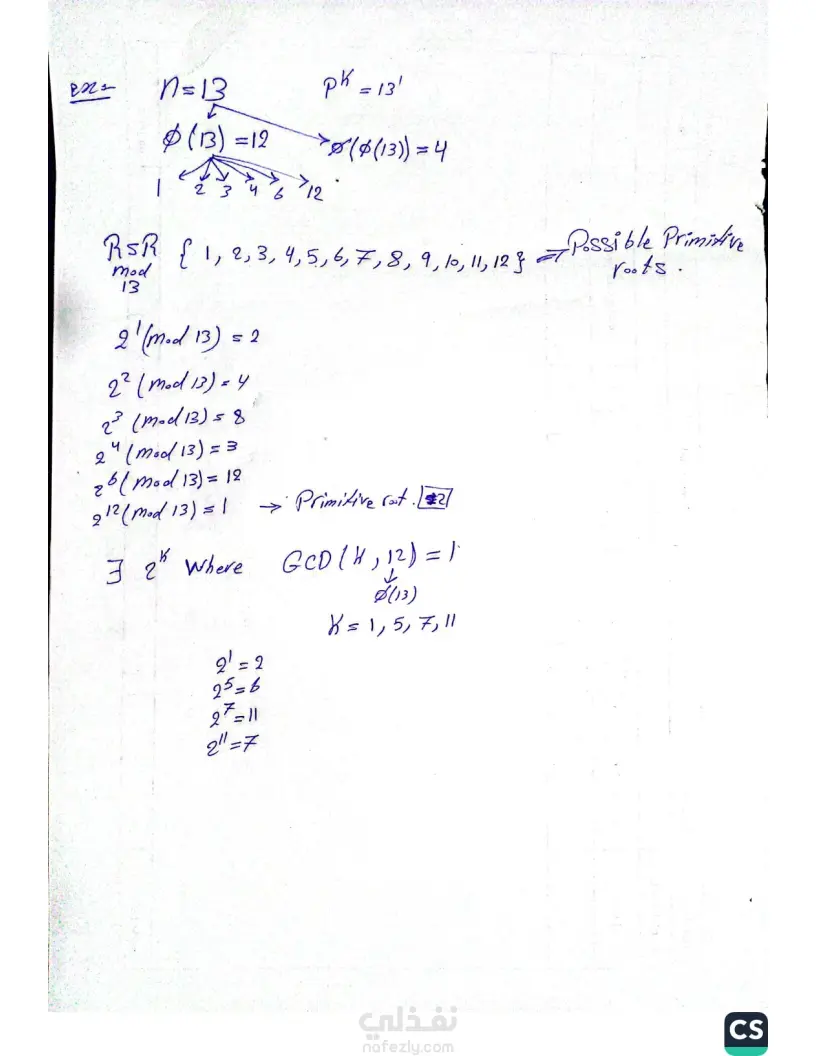 ex:- n=13 p^k = 13^1
φ(13) =12 φ(φ(13)) = 4
1 2 3 4 6 12
RSR { 1, 2, 3, 4, 5, 6, 7, 8, 9, 10, 11, 12 } => Possible Primitive
mod roots.
13
2^1 (mod 13) = 2
2^2 (mod 13) = 4
2^3 (mod 13) = 8
2^4 (mod 13) = 3
2^6 (mod 13) = 12
2^12 (mod 13) = 1 → Primitive root. 2
∃ 2^k Where GCD (k, 12) = 1
φ(13)
k = 1, 5, 7, 11
2^1 = 2
2^5 = 6
2^7 = 11
2^11 = 7
نفذلي
nafezly.com
CS